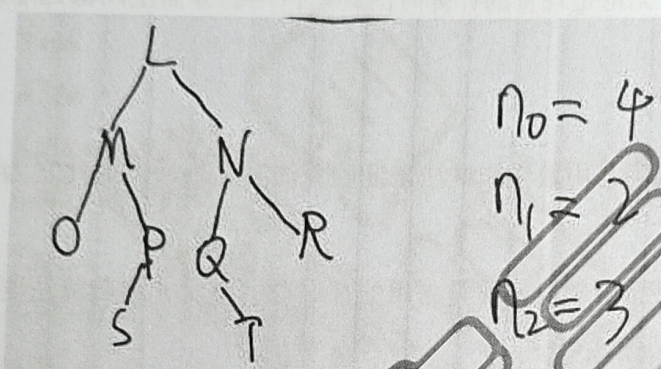 L
M N
O P Q R
S T
n₀ = 4
n₁ = 2
n₂ = 3